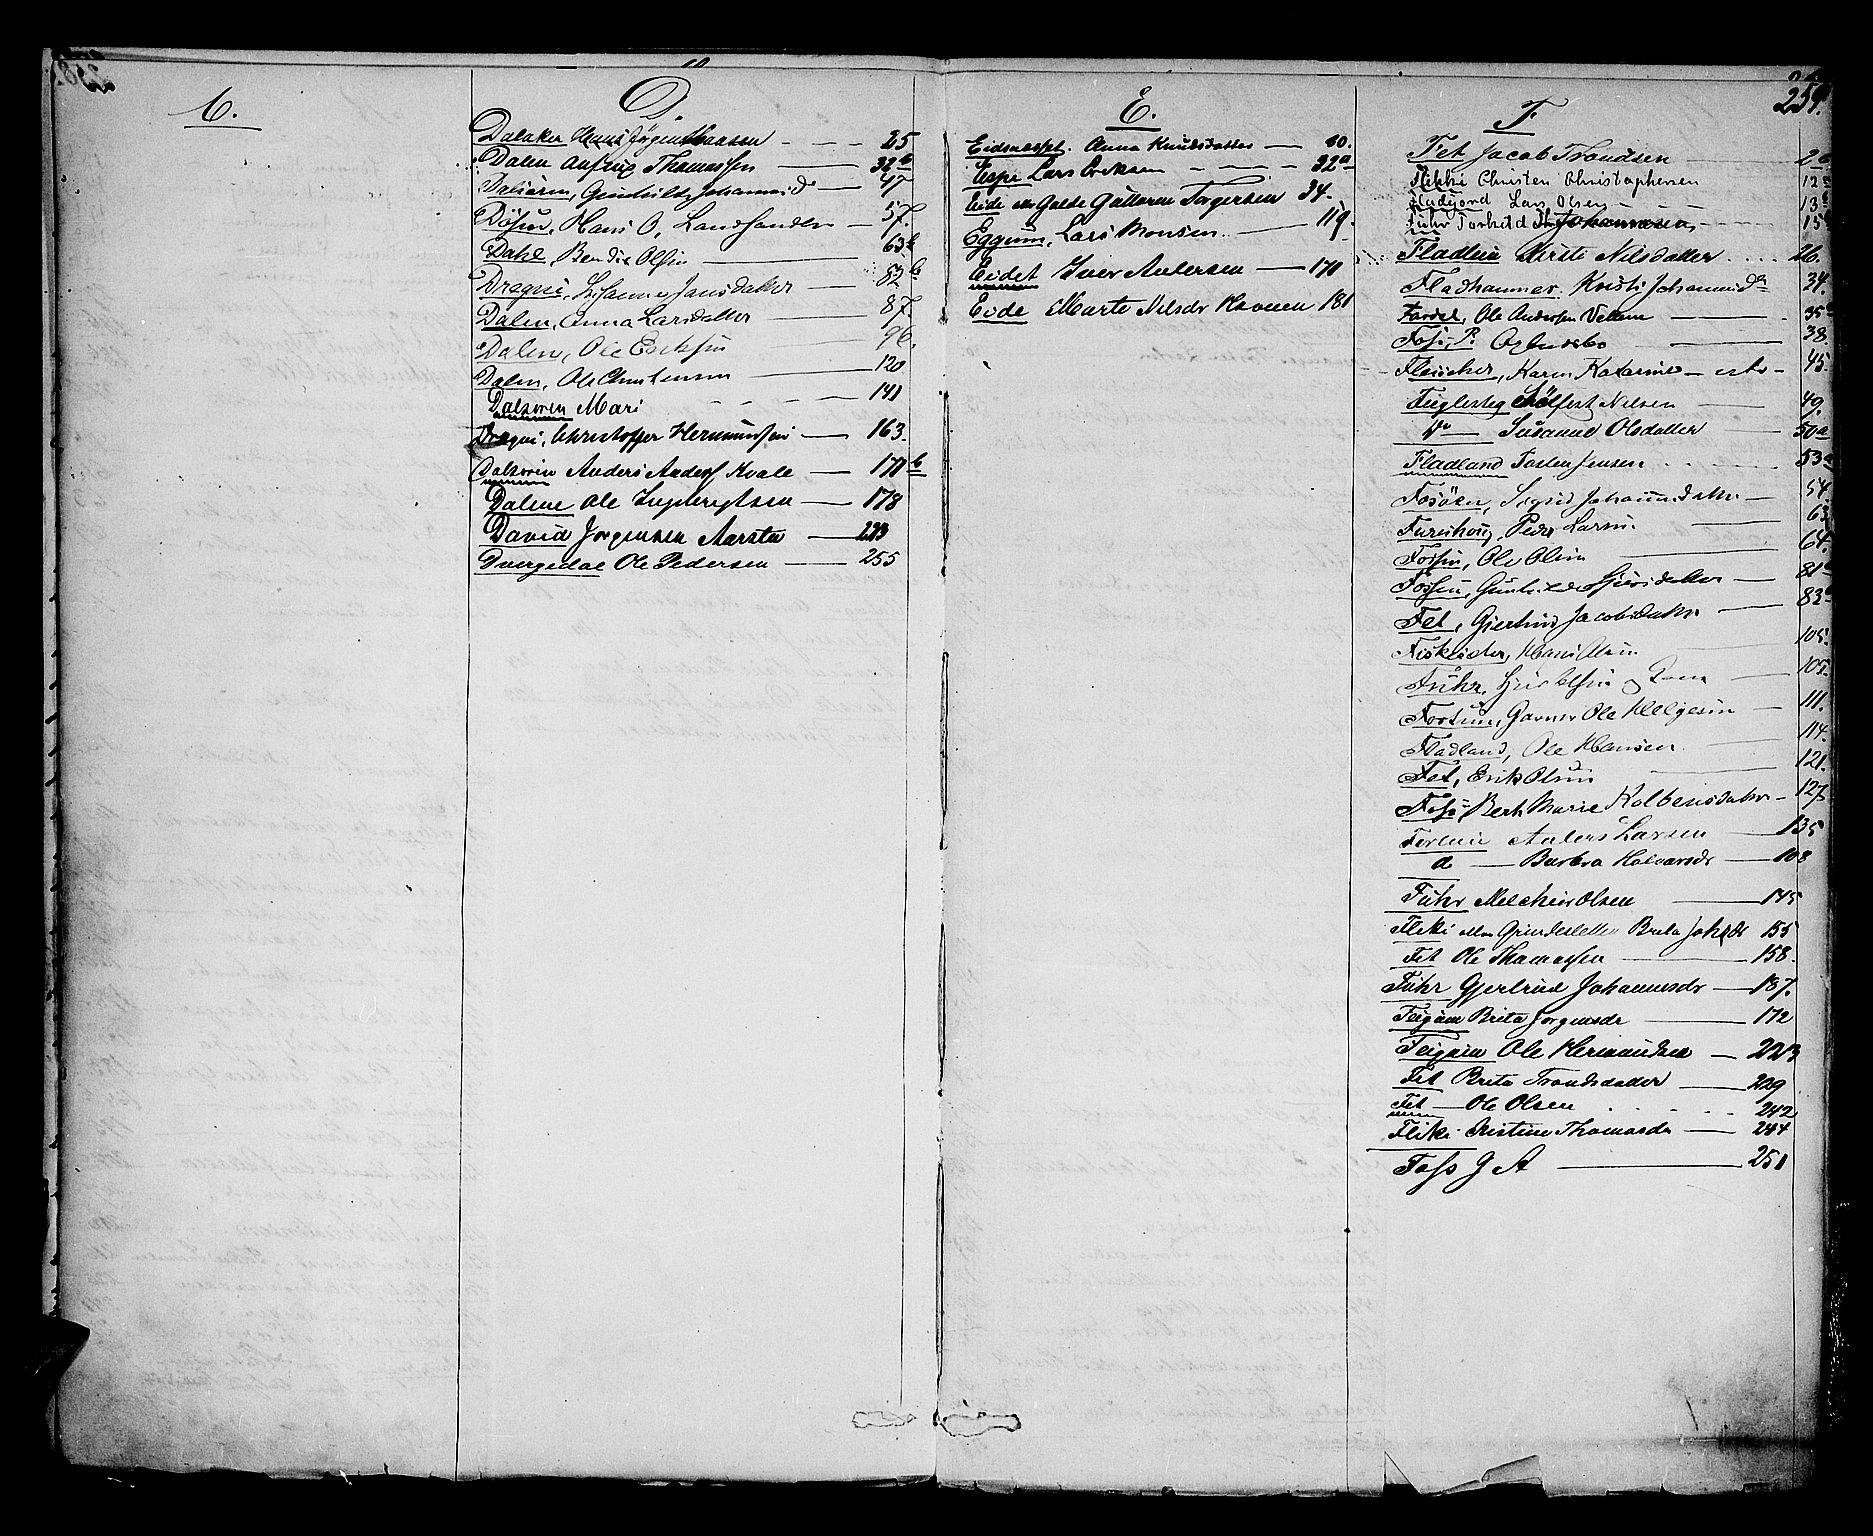 259.
C.
D.
Dalaker Hans Jörgen Haasen 25
Dalen Anfin Thomassen 32b
Dalsören, Gunhild Johannesdr 47
Dösen, Hans O. Landhandler 57.
Dahl, Bendix Olsen 63b
Dregni, Susanne Jansdatter 82b
Dalen, Anna Larsdatter 87.
Dalen, Ole Eriksen 96.
Dalen, Ole Christensen 120
Dalsoren Mari 141
Dregni, Christoffer Hermundsen 163.
Dalsoren Anders Anders Kvale 171b
Dalene Ole Ingebrigtsen 178
David Jorgensen Aarsten 223
Dvergedal Ole Pedersen 255
E.
Eidsnesset. Anna Knudsdatter 30.
Espe Lars Eriksen 32a
Eide Galde Guttorm Torgersen 34.
Eggum, Lars Monsen 119.
Eidet Iver Andersen 170
Eide Marte Nilsdr Kroken 181
F
Fet Jacob Trondsen 2a
Flekki Christen Christophersen 12a
Fladjord Lars Olsen 13b
Fuhr Torkild Johannesen 15b
Fladlein Kirsti Nilsdatter 26.
Fladhammer. Kristi Johannesdr 34.
Fardal, Ole Andersen Vellene 35a
Foss, P. 38.
Fleischer, Karen Katarine 45.
Fuglesteg Nilsen 49.
Do Susanne Olsdatter 50a
Fladland Tosten Jensen 53a
Fosöken, Sigrid Johannesdatter 54.
Furuhoug, Peder Larsen 63.
Fossen, Ole Olsen 64.
Fossen, Gunhilde Sjursdatter 81a
Fet, Gjertrud Jacobsdatter 83a
Fiskester, Hans Olsen 105.
Fuhr, 105.
Fortun, Garver Ole Helgesen 111.
Fladland, Ole Hansen 114.
Fet, Erik Olsen 121.
Foss Berte Marie Kolbensdatter 127.
Forlein Anders Larsen 135
do Barbra Halvarsdr 108
Fuhr Melchior Olsen 145
Flekki eller Grindesletten Brita Johsdr 155
Fet Ole Thomassen 158.
Fuhr Gjertrud Johannesdr 187.
Feigum Brita Jorgensdr 172
Feigum Ole Hermundsen 223
Fet Brita Trondsdatter 229
Fet Ole Olsen 242
Flekki Kristine Thomasdr 244
Foss G A 251